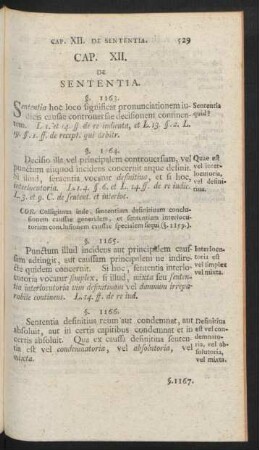 CAP. XII. DE SENTENTIA. 529
CAP. XII.
DE
SENTENTIA.
§. 1163.
Sententia hoc loco significat pronunciationem iu-
dicis causae controversae decisionem continen-
tem. L. 1. et 14. ff. de re iudicata, et L. 13. §. 2. L.
19. §. 1. ff. de recept. qui arbitr.
Sententia
quid?
§. 1164.
Decisio illa vel principalem controversiam, vel
punctum aliquod incidens concernit atque definit.
Si illud, sententia vocatur definitiva, et si hoc,
interlocutoria. L. 1. 4. §. 6. et L. 14. ff. de re iudic.
L. 3. et 9. C. de sentent. et interloc.
Quae est
vel inter-
locutoria,
vel defini-
tiva.
COR. Colligimus inde, sententiam definitivam conclu-
sionem caussae generalem, et sententiam interlocu-
toriam conclusionem caussae specialem sequi. (§. 1159.)
§. 1165.
Punctum illud incidens aut principalem caus-
sam adtingit, aut caussam principalem ne indire-
cte quidem concernit. Si hoc, sententia interlo-
cutoria vocatur simplex; si illud, mixta seu senten-
tia interlocutoria vim definitivam vel damnum irrepa-
rabile continens. L. 14. ff. de re iud.
Interlocu-
toria est
vel simplex
vel mixta.
§. 1166.
Sententia definitiva reum aut condemnat, aut
absolvit, aut in certis capitibus condemnat et in
certis absolvit. Qua ex caussa definitiva senten-
tia est vel condemnatoria, vel absolutoria, vel
mixta.
Definitiva
est vel con-
demnato-
ria, vel ab-
solutoria,
vel mixta.
§. 1167.